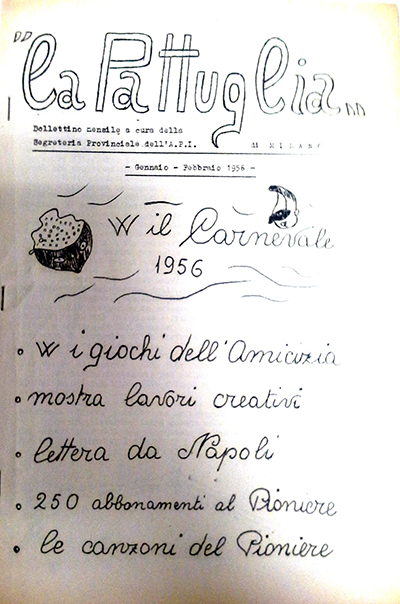 "La Pattuglia"
Bollettino mensile a cura della
Segreteria Provinciale dell'A.P.I. di MILANO
- Gennaio - Febbraio 1956 -
W il Carnevale
1956
• W i giochi dell'Amicizia
• mostra lavori creativi
• lettera da Napoli
• 250 abbonamenti al Pioniere
• le canzoni del Pioniere